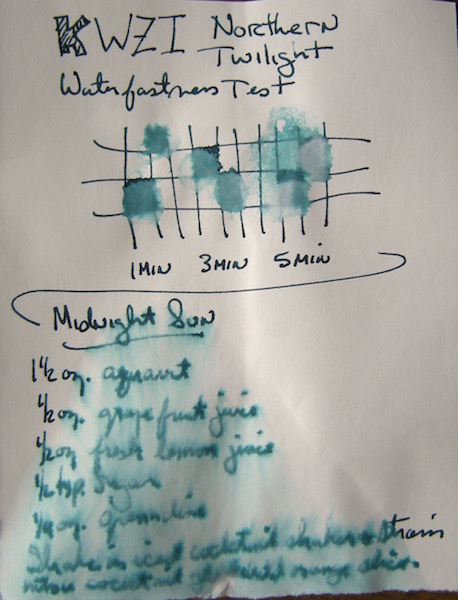 KWZI Northern
Twilight
Waterfastness Test
1 MIN 3 MIN 5 MIN
Midnight Sun
1 1/2 oz. aquavit
1/2 oz. grapefruit juice
1/2 oz fresh lemon juice
1/2 tsp. Sugar
1/4 oz. grenadine
Shake in iced cocktail shaker & strain
into cocktail orange slice.